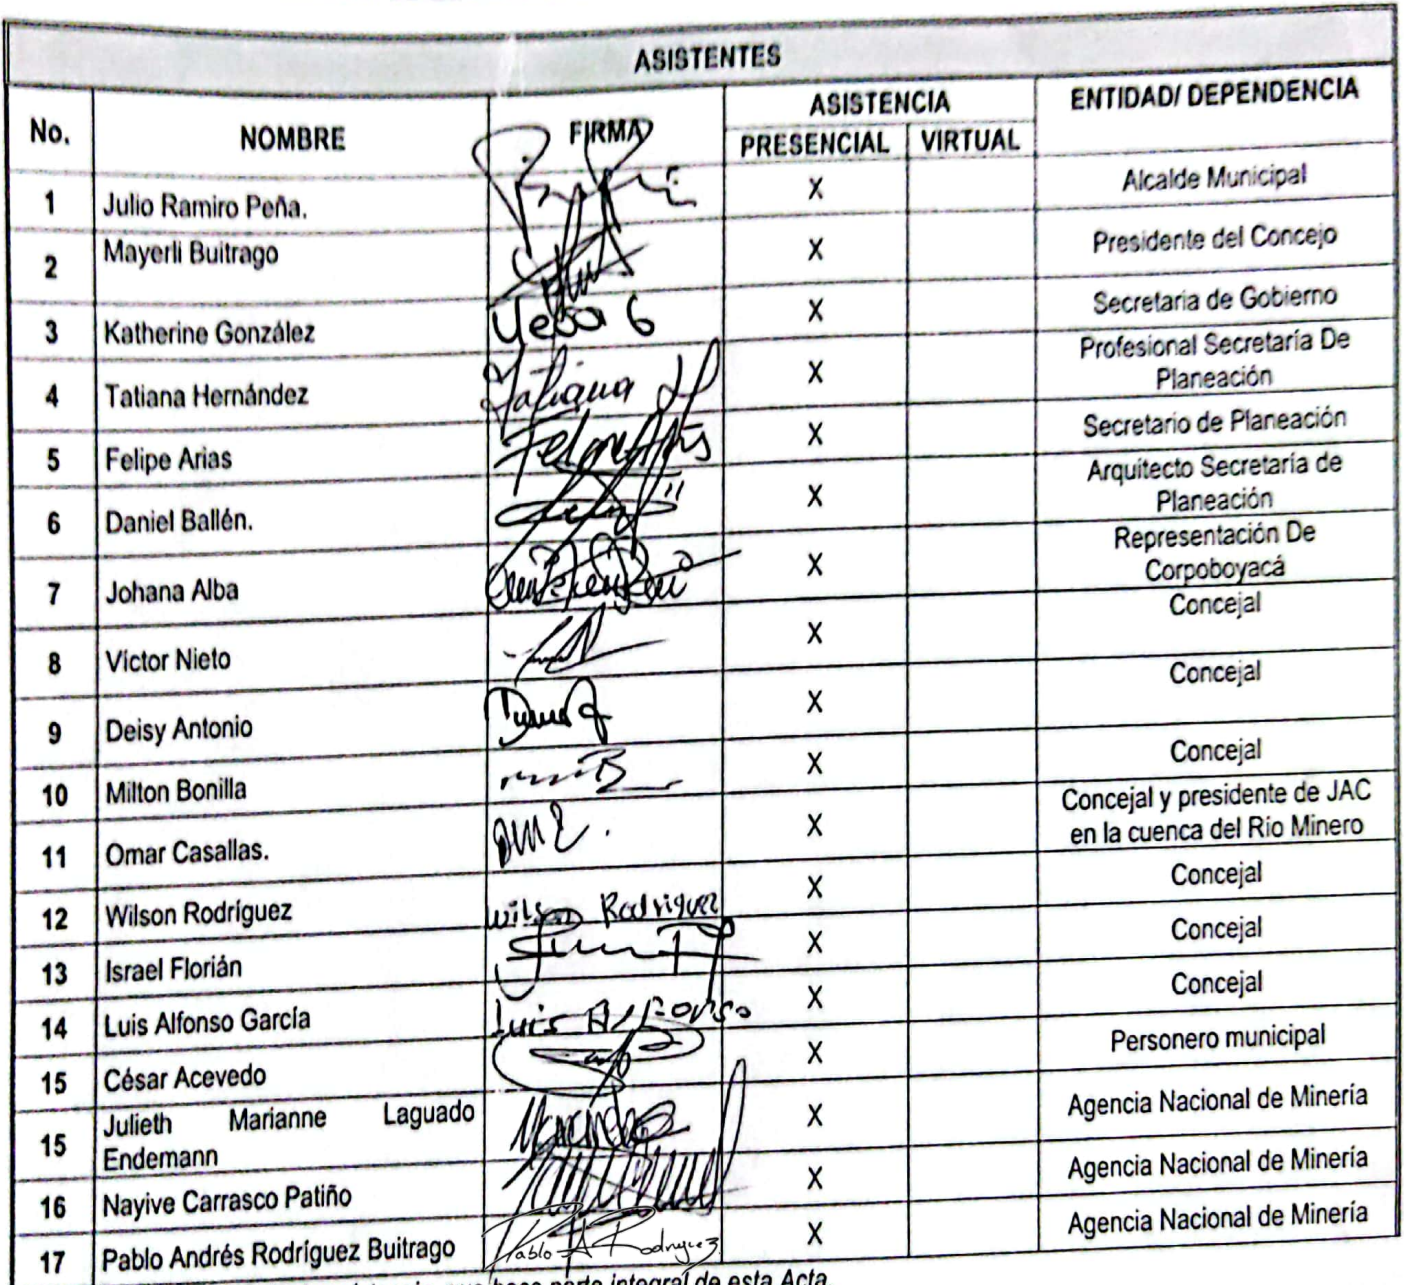 ASISTENTES
No. NOMBRE FIRMA ASISTENCIA ENTIDAD/ DEPENDENCIA
PRESENCIAL VIRTUAL
1 Julio Ramiro Peña. X Alcalde Municipal
2 Mayerli Buitrago X Presidente del Concejo
3 Katherine González Yeba G X Secretaria de Gobierno
4 Tatiana Hernández Tatiana H X Profesional Secretaría De
Planeación
5 Felipe Arias Felipe Arias X Secretario de Planeación
6 Daniel Ballén. X Arquitecto Secretaría de
Planeación
7 Johana Alba X Representación De
Corpoboyacá
8 Víctor Nieto X Concejal
9 Deisy Antonio X Concejal
10 Milton Bonilla X Concejal
11 Omar Casallas. X Concejal y presidente de JAC
en la cuenca del Rio Minero
12 Wilson Rodríguez Wilson Rodriguez X Concejal
13 Israel Florián X Concejal
14 Luis Alfonso García Luis Alfonso X Concejal
15 César Acevedo X Personero municipal
15 Julieth Marianne Laguado
Endemann X Agencia Nacional de Minería
16 Nayive Carrasco Patiño X Agencia Nacional de Minería
17 Pablo Andrés Rodríguez Buitrago Pablo A Rodriguez X Agencia Nacional de Minería
que hace parte integral de esta Acta.